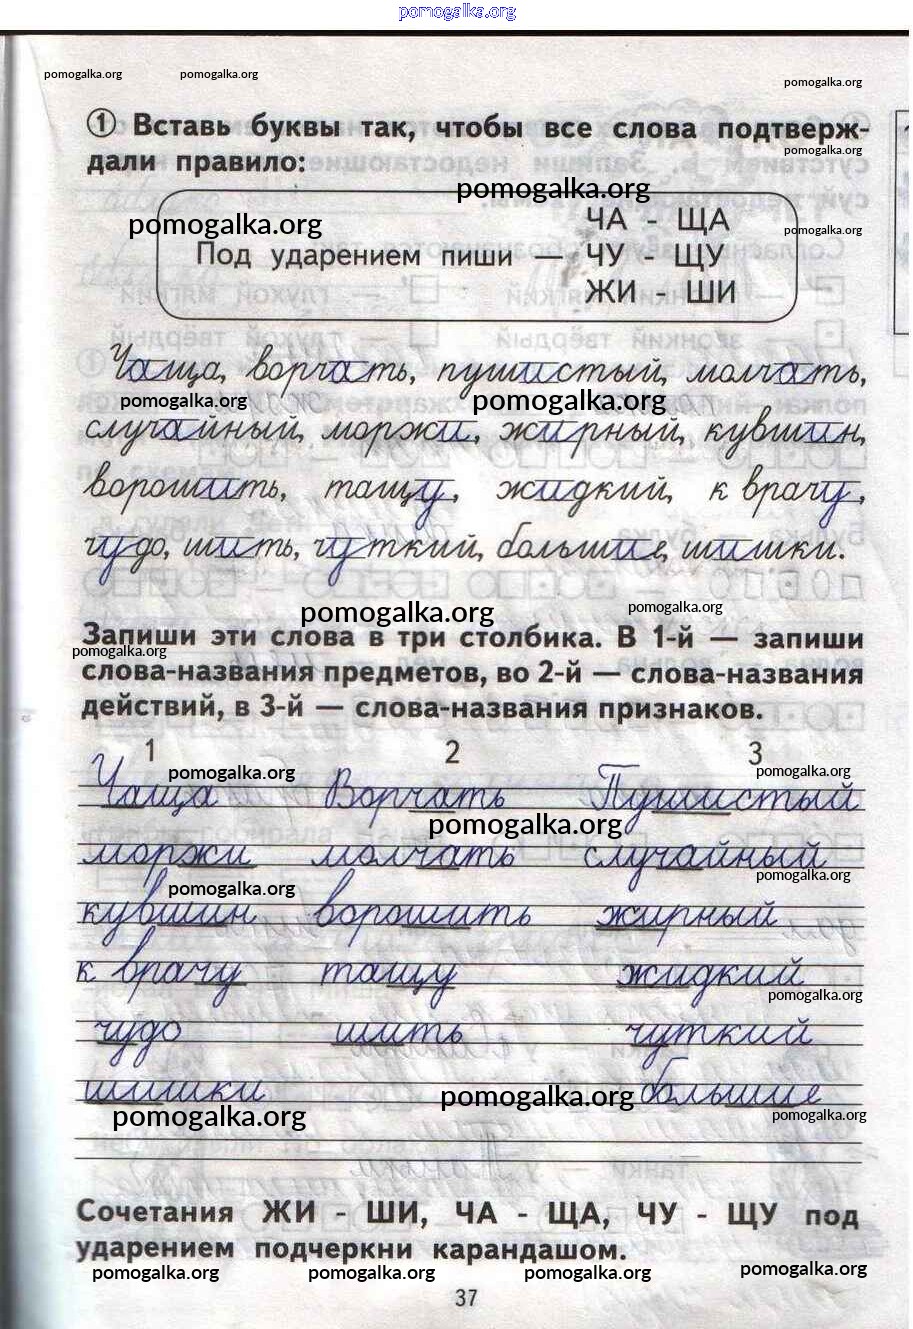 pomogalka.org
pomogalka.org pomogalka.org pomogalka.org
1 Вставь буквы так, чтобы все слова подтверж-
pomogalka.org
дали правило:
pomogalka.org
ЧА - ЩА
pomogalka.org pomogalka.org
Под ударением пиши — ЧУ - ЩУ
ЖИ - ШИ
Чаща, ворчать, пушистый, молчать,
pomogalka.org pomogalka.org
случайный, моржи, жирный, кувшин,
ворошить, тащу, жидкий, к врачу,
чудо, шить, чуткий, большие, шишки.
pomogalka.org pomogalka.org
Запиши эти слова в три столбика. В 1-й — запиши
pomogalka.org
слова-названия предметов, во 2-й — слова-названия
действий, в 3-й — слова-названия признаков.
1 2 3
pomogalka.org pomogalka.org
Чаща Ворчать Пушистый
pomogalka.org
моржи молчать случайный
pomogalka.org pomogalka.org
кувшин ворошить жирный
к врачу тащу жидкий
pomogalka.org
чудо шить чуткий
шишки большие
pomogalka.org pomogalka.org pomogalka.org
Сочетания ЖИ - ШИ, ЧА - ЩА, ЧУ - ЩУ под
ударением подчеркни карандашом.
pomogalka.org pomogalka.org pomogalka.org pomogalka.org
37